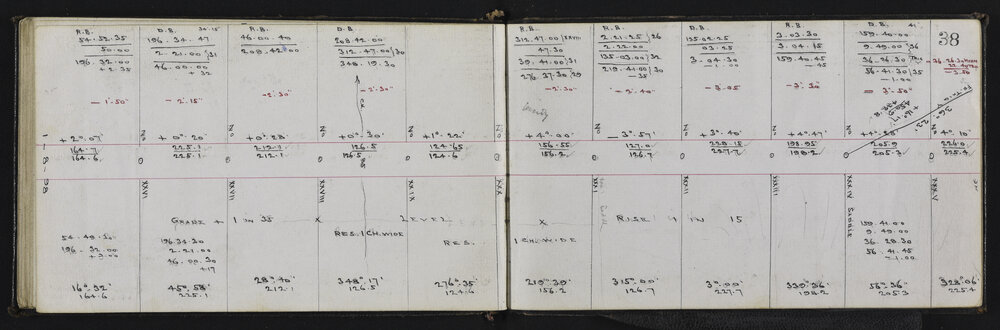 38
R.B.
54.52.35
50.00
196.32.00
+2.35
D.B.
196.34.47
2.21.00/31
46.00.00
+32
R.B.
46.00.40
208.42.00
D.B.
208.42.00
312.47.00/30
348.19.30
R.B.
312.47.00
47.30
39.41.00/31
276.37.30/29
R.B.
2.21.25/26
2.22.00
135.03.00/32
219.41.00/30
-35
D.B.
135.02.25
03.25
3.04.30
-1.00
R.B.
3.03.30
3.04.15
159.40.45
-45
D.B. 41
159.40.00
9.49.00/36
36.26.30
56.41.30/35
-1.00
-1'.50"
-2'.15"
-2'.30"
-2'.30"
-2'.30"
-2'.40"
-3'.05
-3'.30
-3'.50"
-3.50
County
+2°.07'
+0°.20'
+0°.28'
+0°.30'
+1°.22'
+4°.00'
-3°.57'
+3°.40'
+4°.47'
+4°.28'
+4°.10'
164.7
225.1
212.1
126.5
124.65
156.55
127.0
228.15
198.95
205.9
226.0
164.6
225.1
212.1
126.5
124.6
156.2
126.7
227.7
198.2
205.3
225.4
1-8-98
XXVI
XXVII
XXVIII
XXIX
XXX
XXXI
XXXII
XXXIII
XXXIV SADDLE
XXXV
GRADE + 1 IN 38 X LEVEL X RISE 1 IN 15
RES. 1 CH. WIDE
RES. 1 CH. WIDE
54.49.30
196.32.00
+3.00
196.34.30
2.21.00
46.00.30
+17
159.41.00
9.49.00
36.28.30
56.41.45
-1.00
16°.32'
164.6
45°.58'
225.1
28°.40'
212.1
348°.17'
126.5
276°.35'
124.6
219°.39'
156.2
315°.00'
126.7
3°.00'
227.7
339°.36'
198.2
56°.36'
205.3
328°.06'
225.4